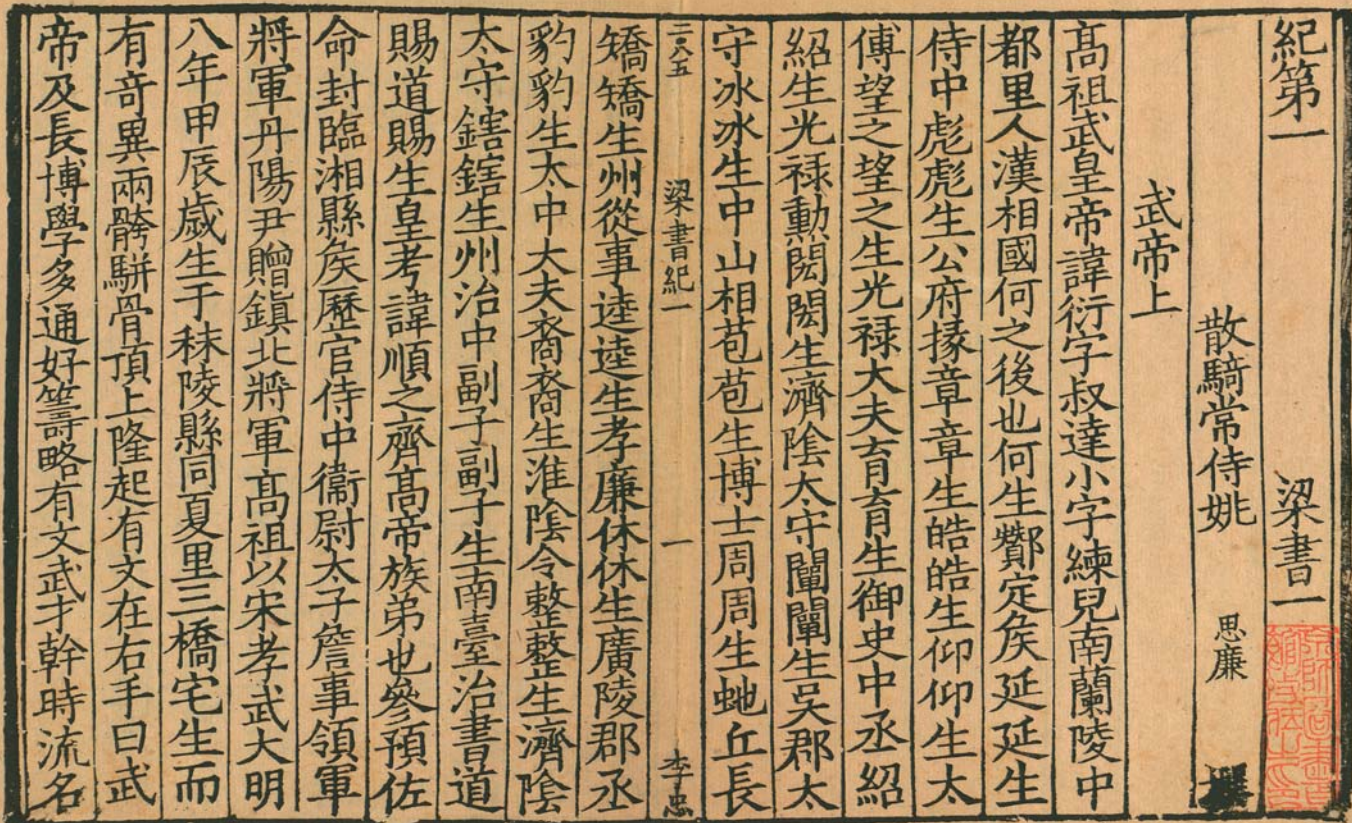 紀第一 梁書一
散騎常侍姚 思廉 撰
武帝上
髙祖武皇帝諱衍字叔達小字練兒南蘭陵中
都里人漢相國何之後也何生酇定矦延延生
侍中彪彪生公府掾章章生皓皓生仰仰生太
傅望之望之生光禄大夫育育生御史中丞紹
紹生光禄勳閎閎生濟陰太守闡闡生吴郡太
守冰冰生中山相苞苞生博士周周生虵丘長
二八五 梁書紀一 一 李忠
矯矯生州從事逵逵生孝廉休休生廣陵郡丞
豹豹生太中大夫裔裔生淮陰令整整生濟陰
太守鎋鎋生州治中副子副子生南臺治書道
賜道賜生皇考諱順之齊髙帝族弟也參預佐
命封臨湘縣矦歷官侍中衞尉太子詹事領軍
將軍丹陽尹贈鎮北將軍髙祖以宋孝武大明
八年甲辰歲生于秣陵縣同夏里三橋宅生而
有竒異兩骻駢骨頂上隆起有文在右手曰武
帝及長博學多通好籌略有文武才幹時流名